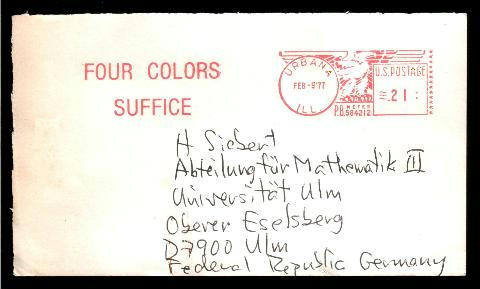 FOUR COLORS
SUFFICE
URBANA
FEB-9'77
ILL.
U.S. POSTAGE
.21
P.B. METER
584212
H Siebert
Abteilung für Mathematik III
Universität Ulm
Oberer Eselsberg
D7900 Ulm
Federal Republic Germany